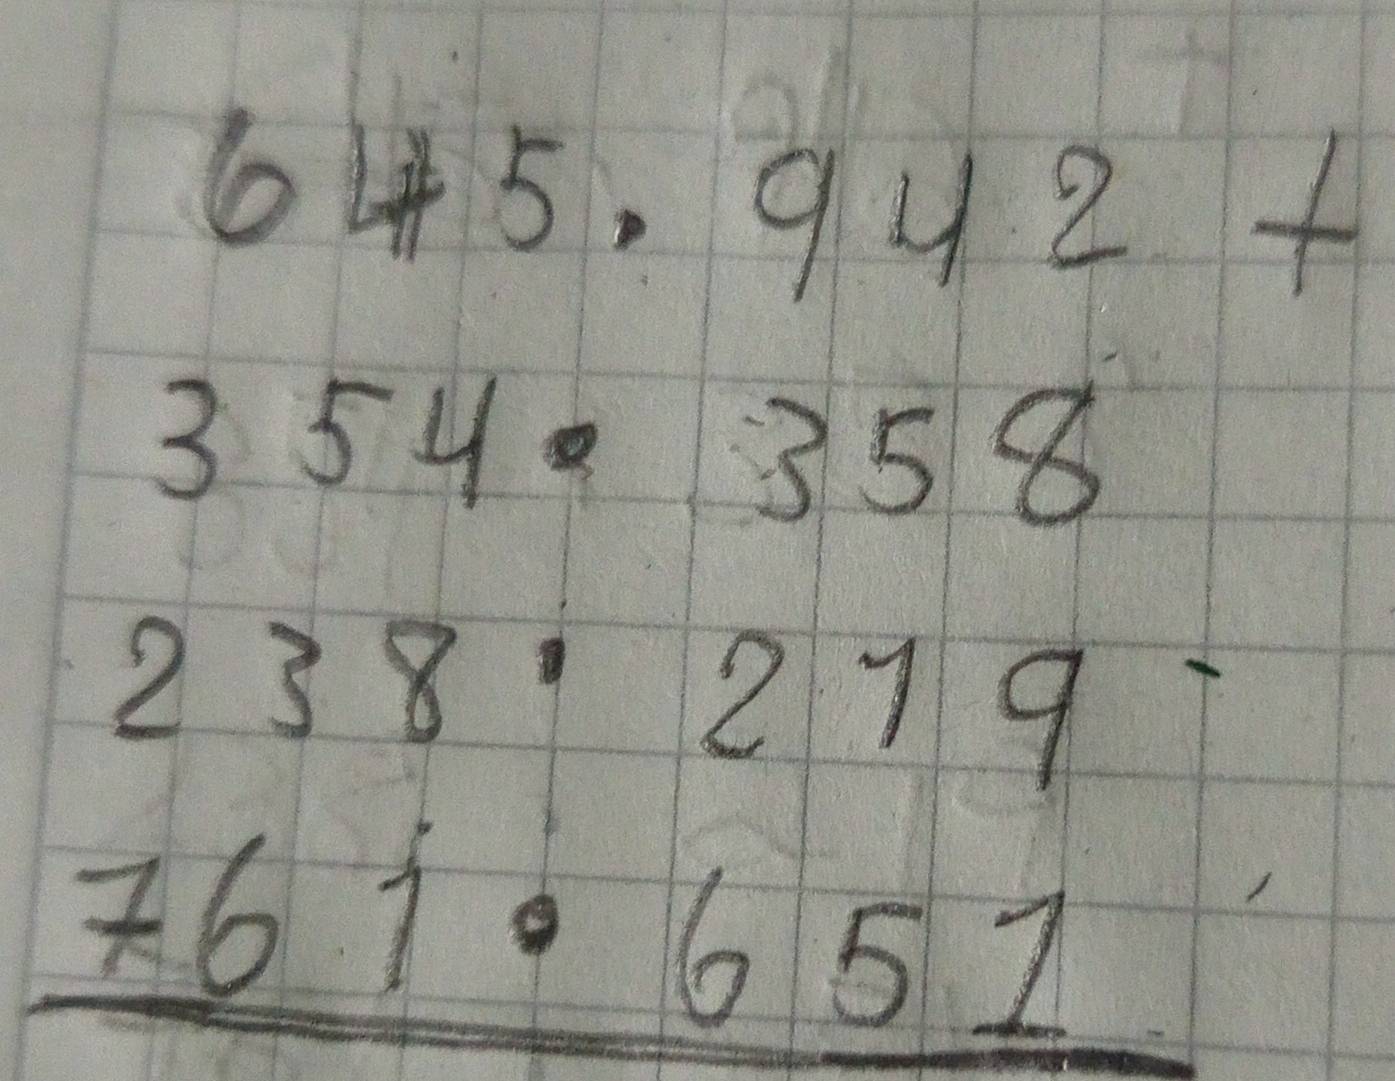 645.942 +
354.358
238.219
761.651